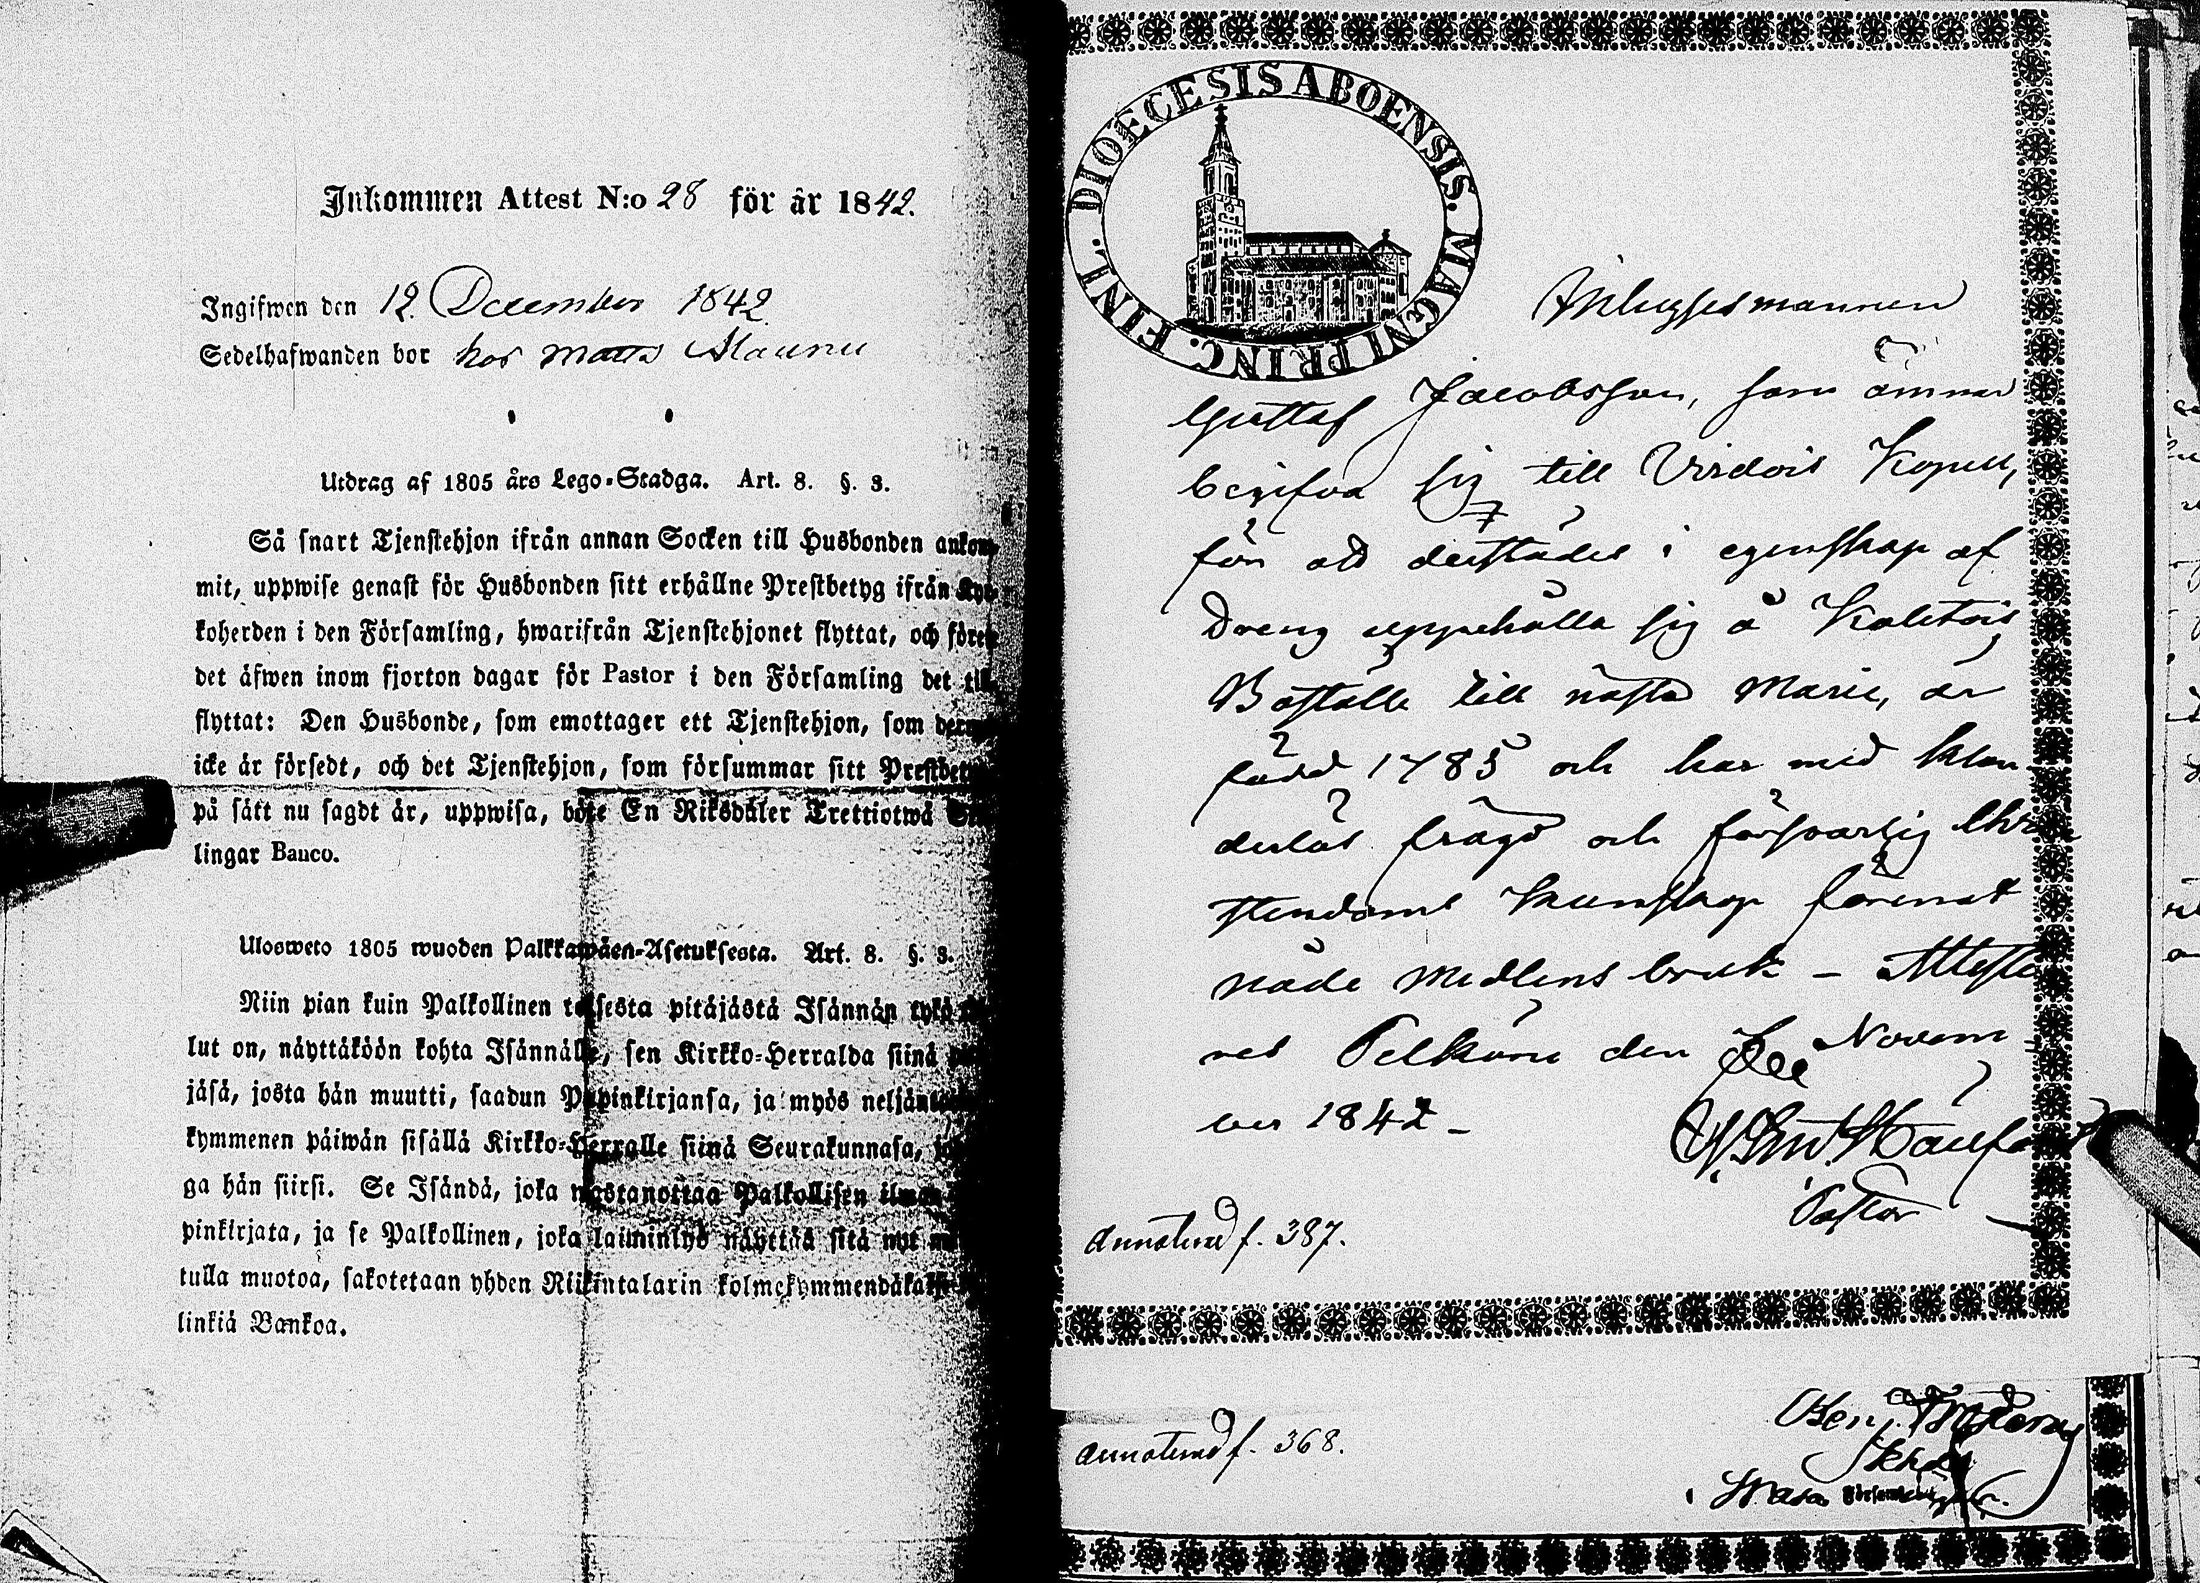 Inkommen Attest N:o 28 för år 1842.
Ingifwen den 12. December 1842
Sedelhafwanden bor hos Matts Maunu
Utdrag af 1805 års Lego-Stadga. Art. 8. §. 3.
Så snart Tjenstehjon ifrån annan Socken till Husbonden ankom-
mit, uppwise genast för Husbonden sitt erhållne Prestbetyg ifrån Kyr-
koherden i den Församling, hwarifrån Tjenstehjonet flyttat, och förete
det äfwen inom fjorton dagar för Pastor i den Församling det till-
flyttat: Den Husbonde, som emottager ett Tjenstehjon, som dermed
icke är försedt, och det Tjenstehjon, som försummar sitt Prestbetyg
på sätt nu sagdt är, uppwisa, böte En Riksdaler Trettiotwå Skil-
lingar Banco.
Ulosweto 1805 wuoden Palkkawäen-Asetuksesta. Art. 8. §. 3.
Niin pian kuin Palkollinen toisesta pitäjästä Isännän tykö
lut on, näyttäköön kohta Isännälle, sen Kirkko-Herralda siinä
jäsä, josta hän muutti, saadun Papinkirjansa, ja myös neljän
kymmenen päiwän sisällä Kirkko-Herralle siinä Seurakunnasa,
ga hän siirsi. Se Isändä, joka wastanottaa Palkollisen ilman
pinkirjata, ja se Palkollinen, joka laiminlyö näyttää sitä nyt
tulla muotoa, sakotetaan yhden Riikintalarin kolmekymmendäkaksi
linkiä Bankoa.
DIOECESIS ABOENSIS. MAGNI PRINC. FINL.
Inhysesmannen
Gustaf Jacobsson, som ämnar
begifva sig till Virdois Kapell,
för att derstädes i egenskap af
Dreng uppehålla sig å Kaletois
Boställe till nästa Marie, är
född 1785 och har med klan-
derlös frägd och försvarlig Chri
stendoms kunskap förenat
nåde medlens bruk – Atteste
res Pelkäne den Novem-
ber 1842 –
Pastor
Annoterad f. 387.
Annoterad f. 368.
Wasa Församling